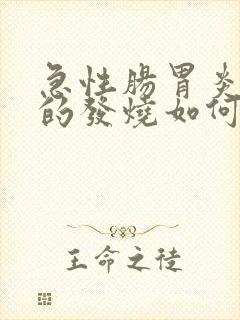 急性腸胃炎
的發燒如何
王命之徒